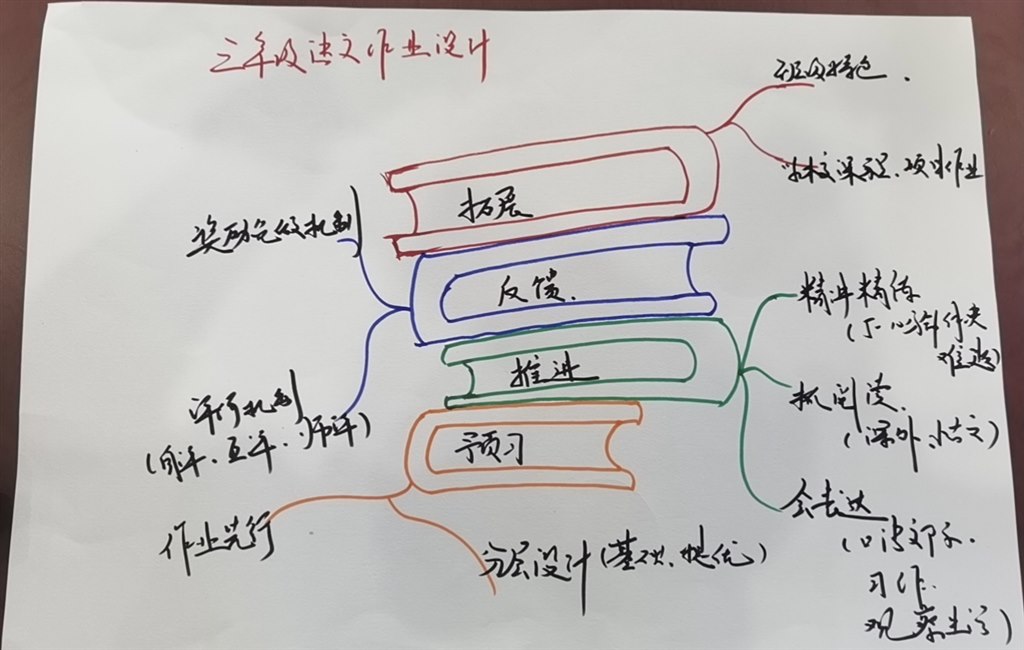 三年级语文作业设计
班级特色.
学校课程、项目作业
拓展
奖励机制
反馈.
精准精练
难题)
推进
评价机制
(自评、互评、师评)
抓阅读.
(课外、古文)
预习
会表达
作业先行
分层设计(基础、提优)
习作.
观察生活)